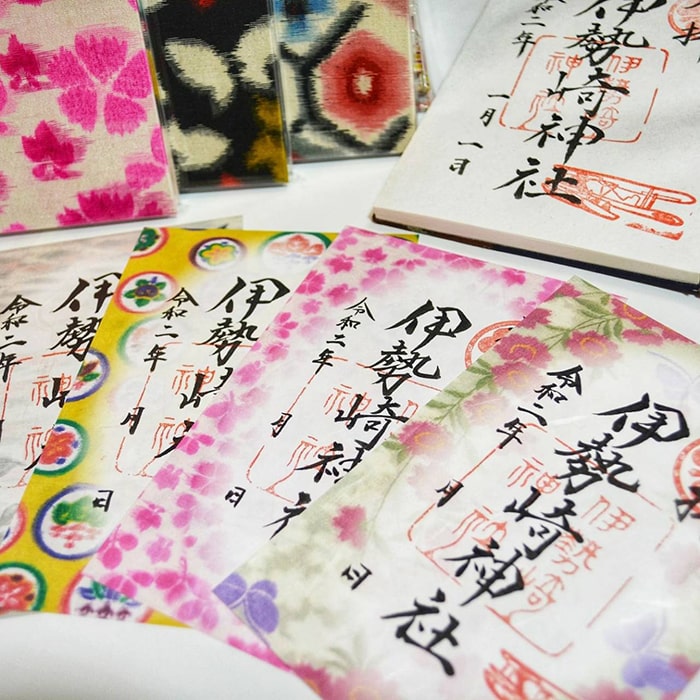 伊勢崎神社
伊勢崎
神社
令和二年
一月一日
伊勢
令和二年
伊勢崎
令和二年
月
日
伊勢崎神
令和二年
月
日
伊勢崎神社
伊勢崎
神社
令和二年
月
日